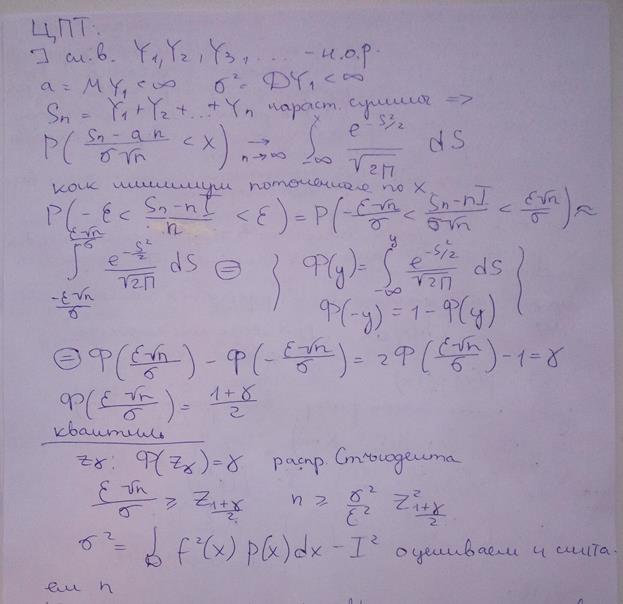 ЦПТ:
] сл.в. Y₁, Y₂, Y₃, .... - н.о.р.
a = MY₁ < ∞ σ² = DY₁ < ∞
Sₙ = Y₁ + Y₂ + ... + Yₙ нараст. суммы =>
P( (Sₙ - a n)/(σ√n) < x ) →_{n→∞} ∫_{-∞}^{x} e^{-S²/2}/√(2П) dS
как минимум поточечное по x
P( -ε < (Sₙ - nI)/n < ε ) = P( -ε√n/σ < (Sₙ - nI)/(σ√n) < ε√n/σ ) ≈
∫_{-ε√n/σ}^{ε√n/σ} e^{-S²/2}/√(2П) dS ⊜ } Φ(y) = ∫_{-∞}^{y} e^{-S²/2}/√(2П) dS }
Φ(-y) = 1 - Φ(y)
⊜ Φ(ε√n/σ) - Φ(-ε√n/σ) = 2Φ(ε√n/σ) - 1 = γ
Φ(ε√n/σ) = (1+γ)/2
квантиль
z_γ: Φ(z_γ) = γ распр. Стьюдента
ε√n/σ ≥ Z_{(1+γ)/2} n ≥ σ²/ε² Z²_{(1+γ)/2}
σ² = ∫ f²(x) p(x) dx - I² оцениваем и счита
ем n